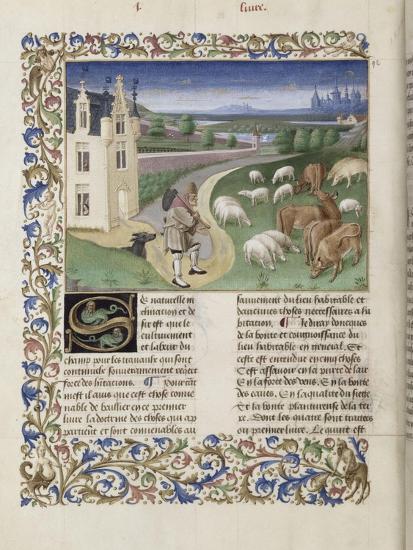 liure.
Se naturelle in
clination et de
sir est que le
cultiuement
et labeur du
champ pour les trauaulx qui sont
continuele souuerainement
force des
mest il auis que cest chose conue
nable de baillier en ce premier
liure la doctrine des choses qui ap
partient et sont conuenables au
du lieu habitable et
daucunes choses necessaires a ha
bitation. Je diray doncques
de la bonte et congnoissance du
lieu habitable en general. Et
ceste est entendue en cinq choses
Cest assauoir en la purte de lair
Et en la force des vens. Et en la bonte
des eaues. Et en la qualite du siege
Et en la bonte plantureuse de la ter
re. Dont les quatre sont traitees
ou premier liure. Le quint est